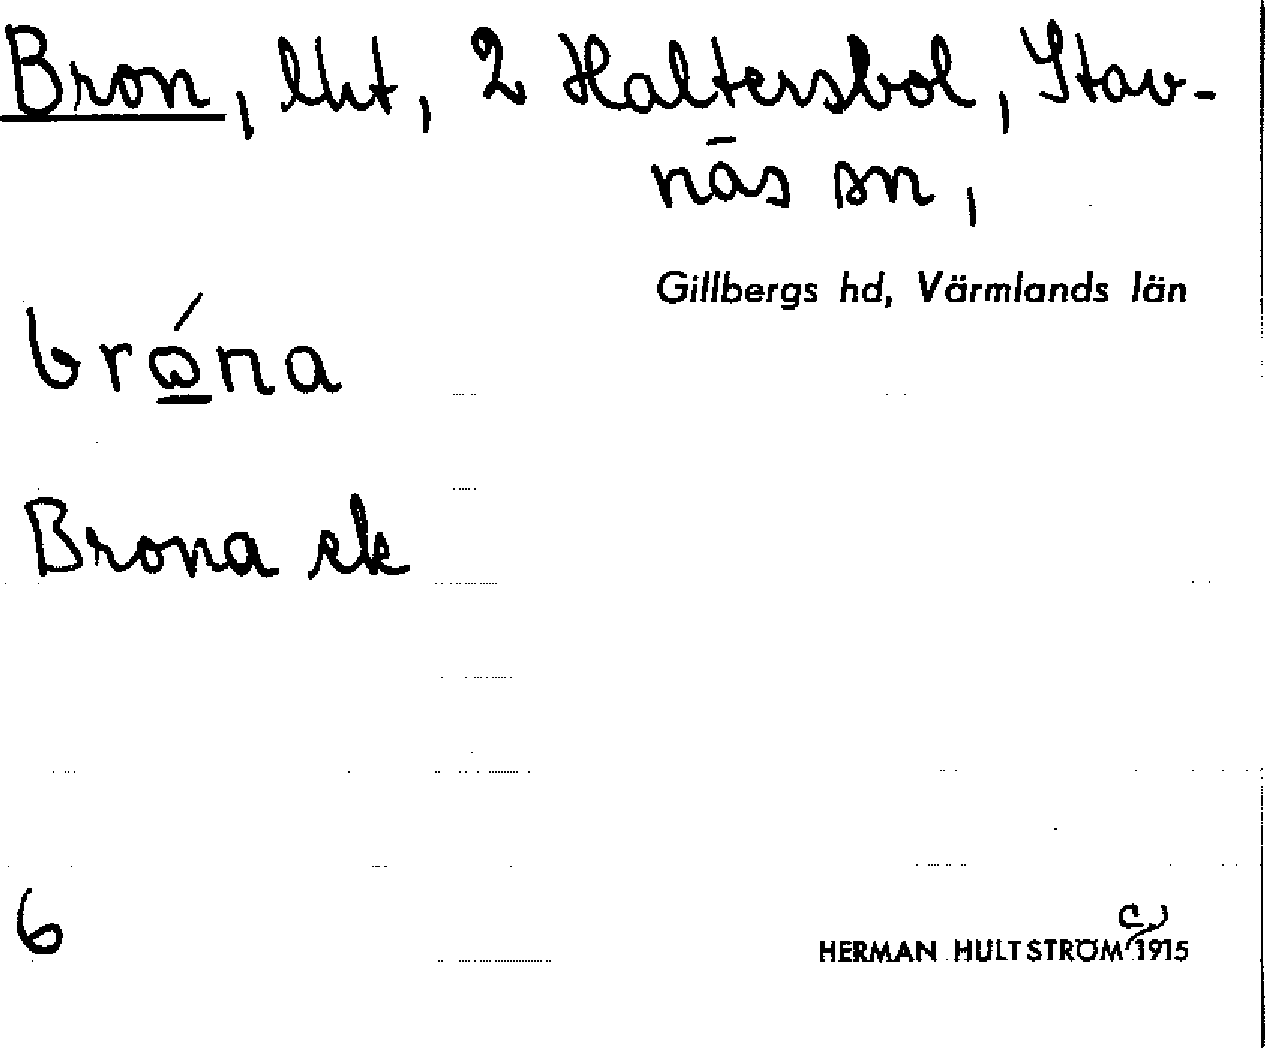 Bron, lht, 2 Haltersbol, Stav-
näs sn,
Gillbergs hd, Värmlands län
Brona ek
6
HERMAN HULTSTRÖM 1915